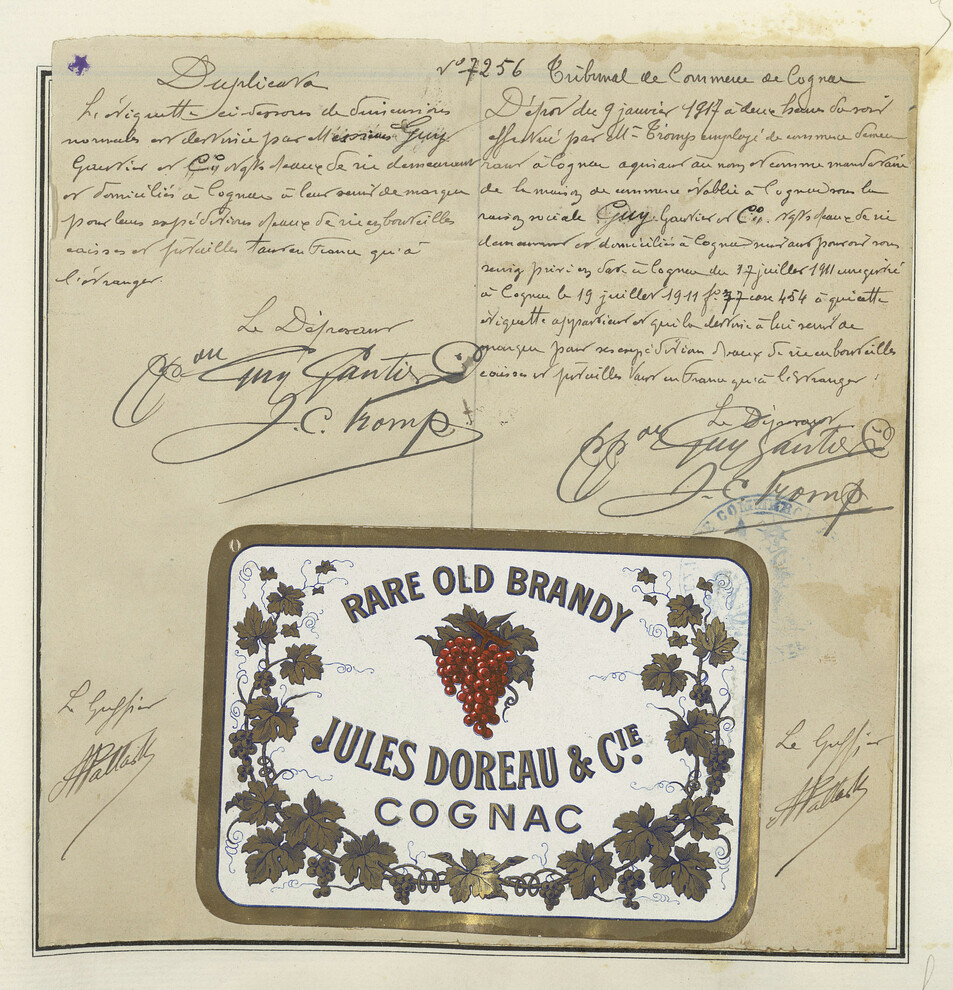 Duplicata
L'étiquette ci-dessous de dimensions
normales est destinée par Messieurs Guy
Gautier et Co. ngts d'eaux de vie demeurant
et domiciliés à Cognac à leur servir de marque
pour leurs expéditions d'eaux de vie en bouteilles
caisses et futailles tant en France qu'à
l'étranger.
Le Déposant
Guy Gautier Co
J. C. Tromp
No 7256 Tribunal de Commerce de Cognac
Dépôt du 9 janvier 1917 à deux heures du soir
effectué par Mr Tromp employé de commerce demeu
rant à Cognac agissant au nom et comme mandataire
de la maison de commerce établie à Cognac sous la
raison sociale Guy Gautier et Co. ngts d'eaux de vie
demeurant et domiciliés à Cognac suivant pouvoir sous
seing privé en date à Cognac du 17 juillet 1911 enregistré
à Cognac le 19 juillet 1911 fo 37 case 454 à qui cette
étiquette appartient et qui la destine à lui servir de
marque pour ses expéditions d'eaux de vie en bouteilles
caisses et futailles tant en France qu'à l'étranger.
Le Déposant
Guy Gautier Co
J. C. Tromp
COMMERCE
RARE OLD BRANDY
JULES DOREAU & CIE.
COGNAC
Le Greffier
Le Greffier